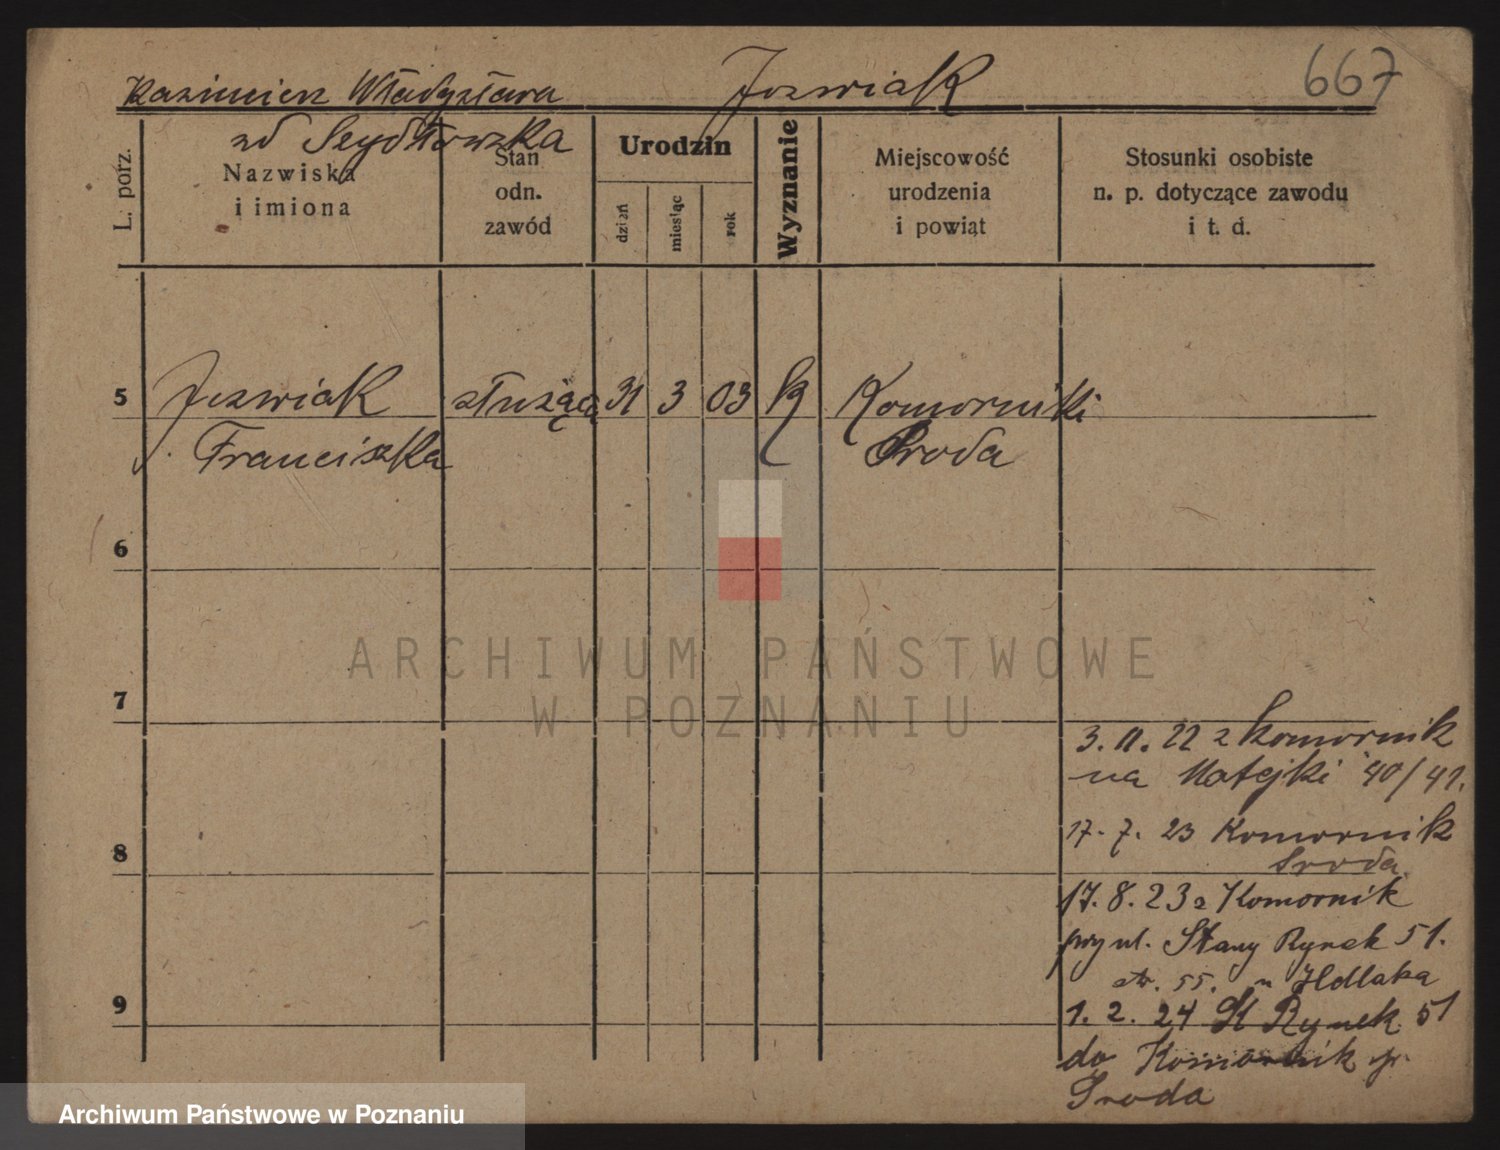 667
Kazimierz Władysława Jozwiak
zd Szydłowska
L. porz.
Nazwiska
i imiona
Stan
odn.
zawód
Urodzin
dzień
miesiąc
rok
Wyznanie
Miejscowość
urodzenia
i powiąt
Stosunki osobiste
n. p. dotyczące zawodu
i t. d.
5 Jozwiak służąca 31 3 03 k Komorniki
Franciszka Sroda
6
7
8
9
3. 11. 22 z Komornik
na Matejki 40/41.
17. 7. 23 Komornik
Sroda
17. 8. 23 z Komornik
przy ul. Stary Rynek 51.
str. 55. u
1. 2. 24 St Rynek 51
do Komornik p.
Sroda
ARCHIWUM PAŃSTWOWE
W POZNANIU
Archiwum Państwowe w Poznaniu